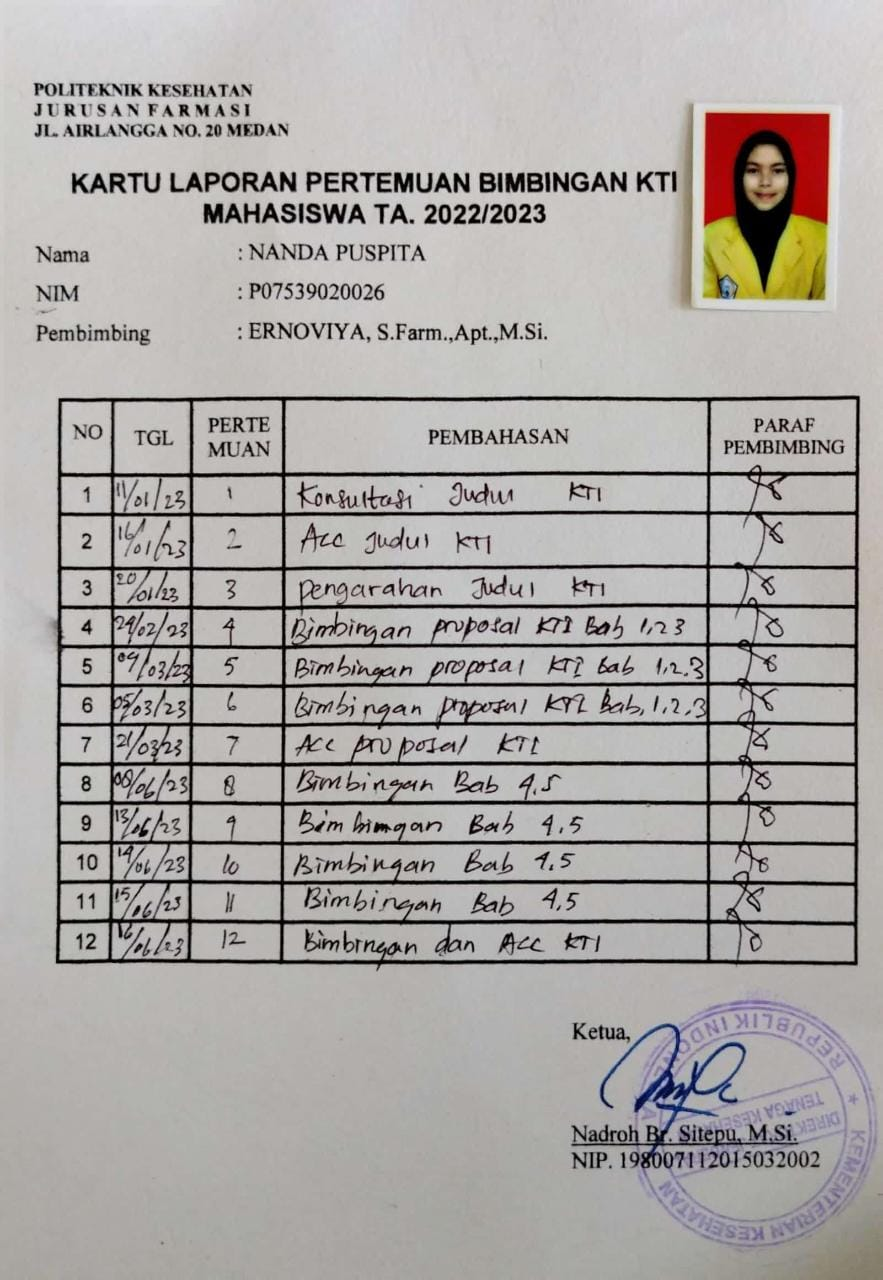 POLITEKNIK KESEHATAN
JURUSAN FARMASI
JL. AIRLANGGA NO. 20 MEDAN
KARTU LAPORAN PERTEMUAN BIMBINGAN KTI
MAHASISWA TA. 2022/2023
Nama : NANDA PUSPITA
NIM : P07539020026
Pembimbing : ERNOVIYA, S.Farm.,Apt.,M.Si.
NO TGL PERTE MUAN PEMBAHASAN PARAF PEMBIMBING
1 11/01/23 1 Konsultasi Judul KTI
2 16/01/23 2 Acc Judul KTI
3 20/01/23 3 pengarahan Judul KTI
4 /02/23 4 Bimbingan proposal KTI Bab 1,2 3
5 /03/23 5 Bimbingan proposal KTI Bab 1,2,3
6 05/03/23 6 Bimbingan proposal KTI Bab, 1,2,3
7 21/03/23 7 Acc proposal KTI
8 08/06/23 8 Bimbingan Bab 4,5
9 13/06/23 9 Bimbimgan Bab 4,5
10 14/06/23 10 Bimbingan Bab 4,5
11 15/06/23 11 Bimbingan Bab 4,5
12 16/06/23 12 Bimbingan dan Acc KTI
Ketua,
Nadroh Br. Sitepu, M.Si.
NIP. 198007112015032002
KEMENTERIAN KESEHATAN
REPUBLIK INDONESIA
TENAGA KESEHATAN